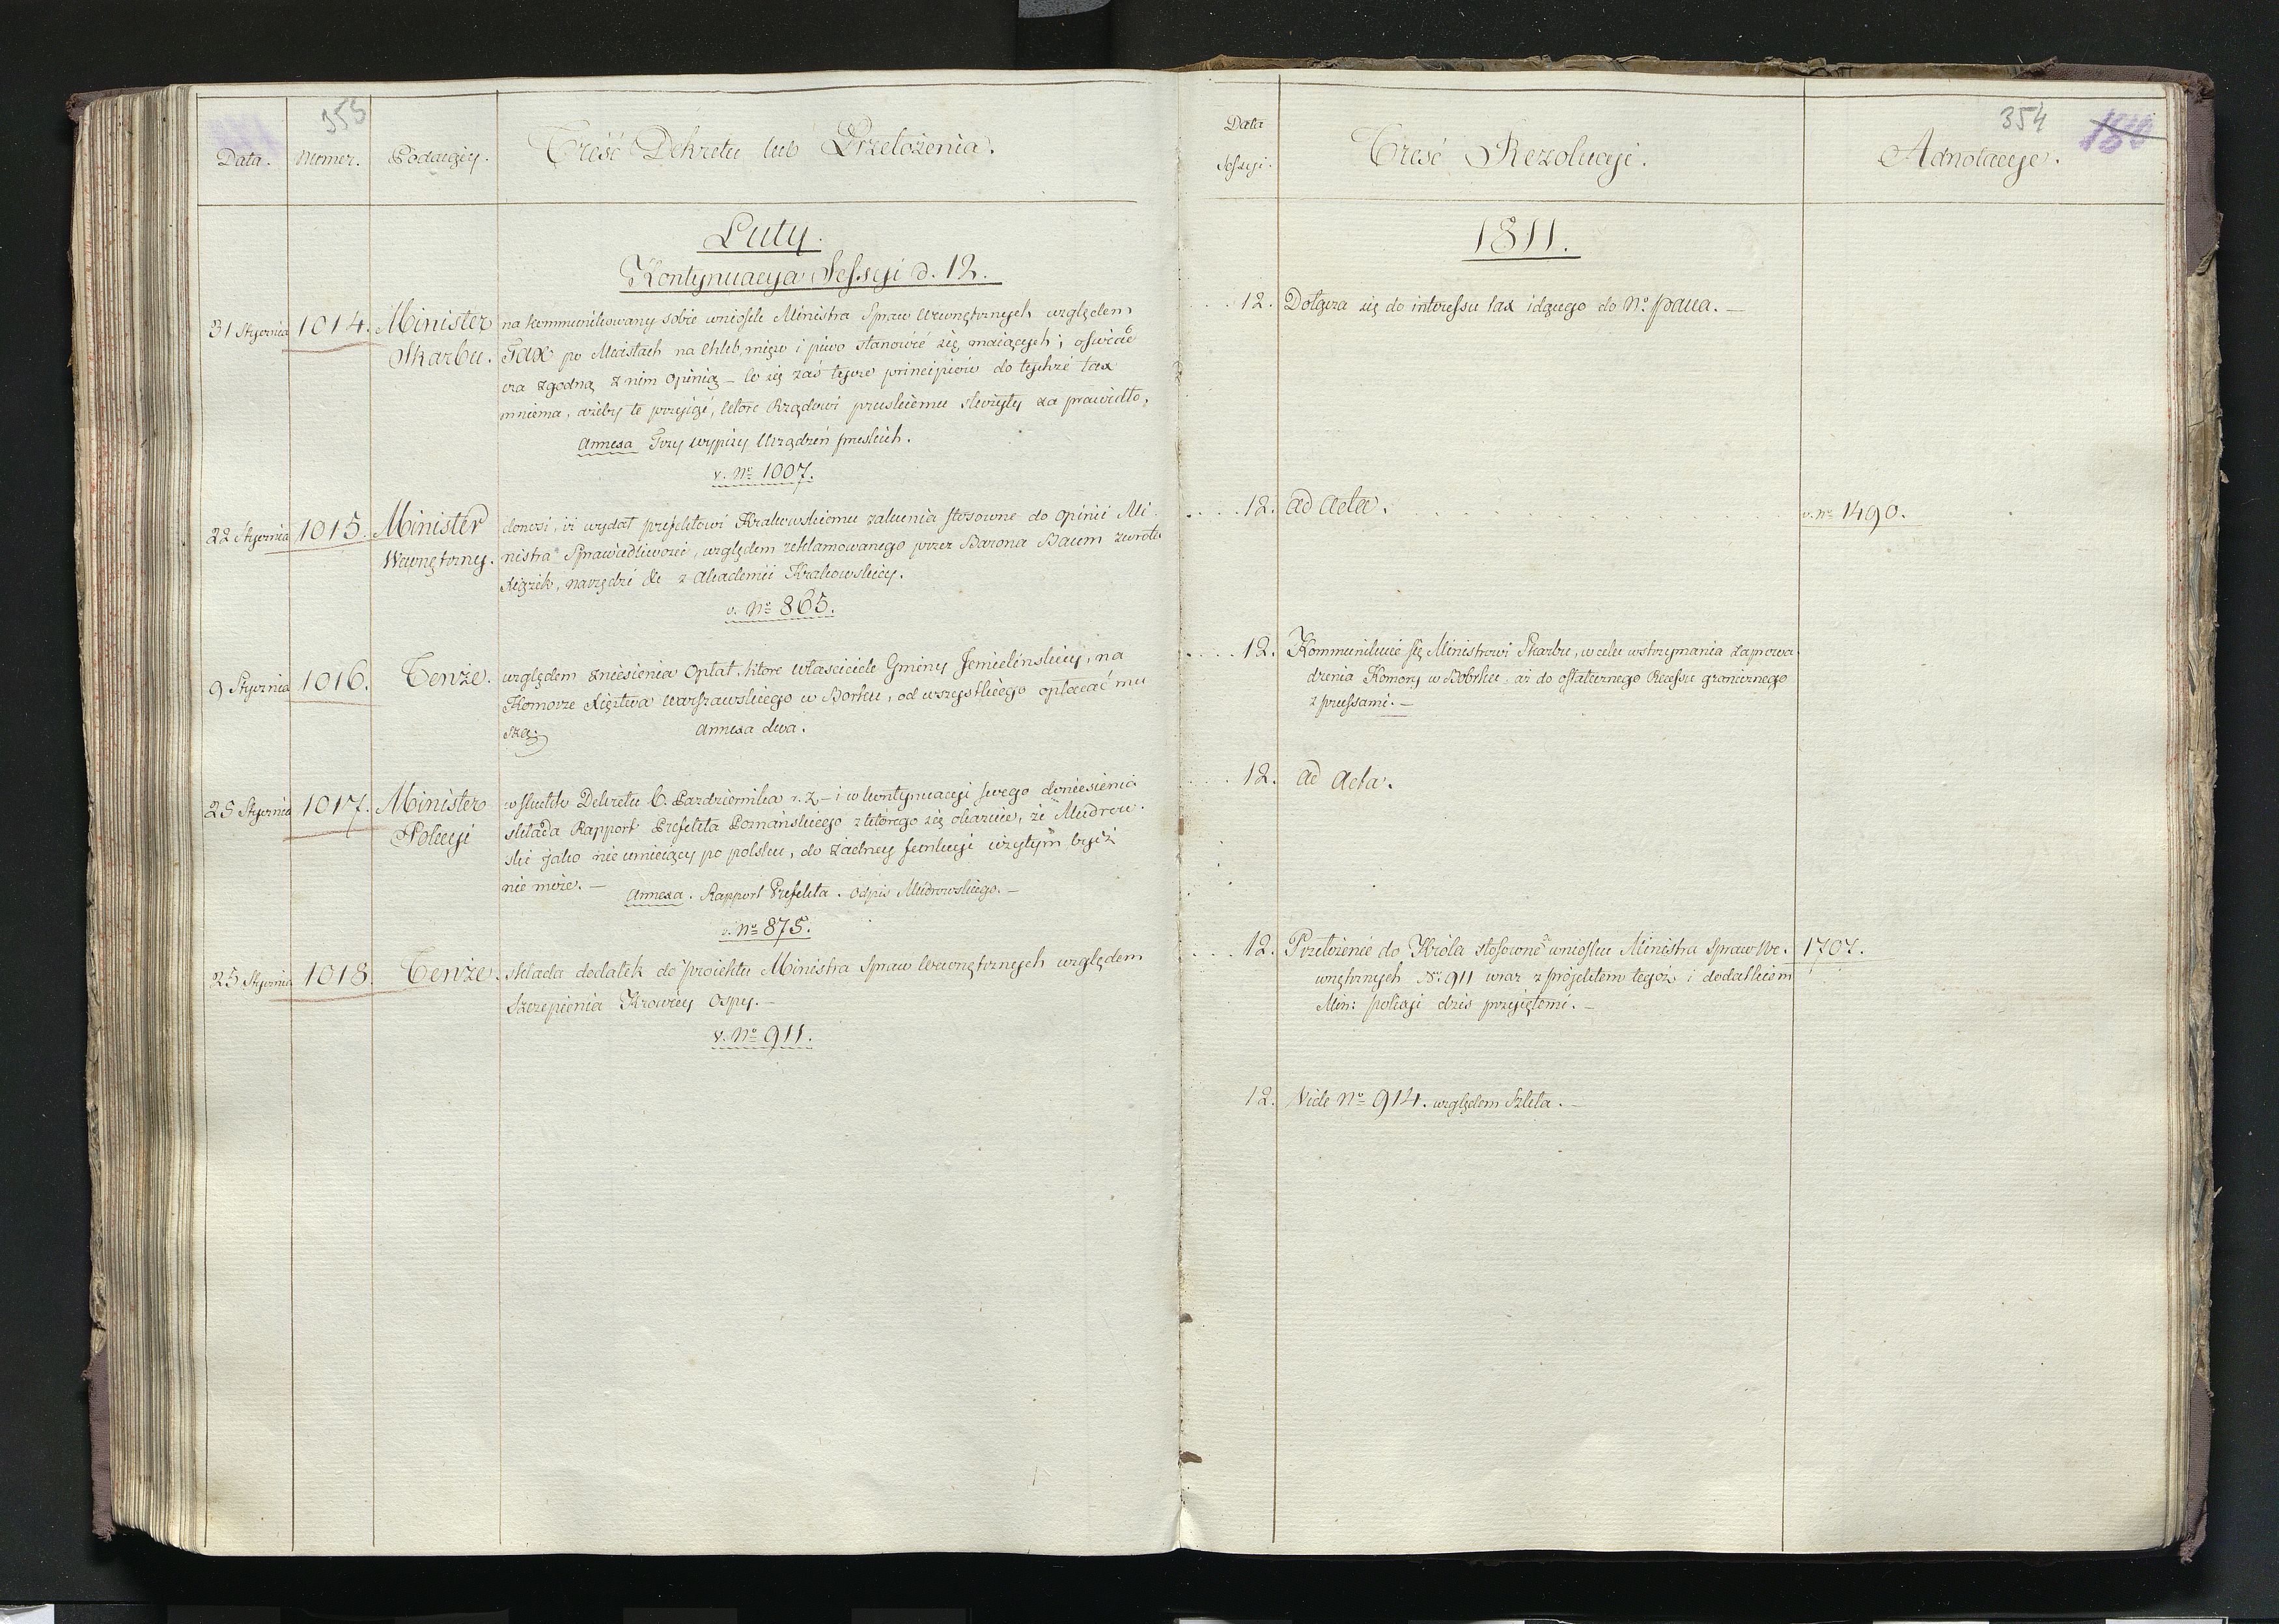 353
Data. Numer. Podaiący. Treść Dekretu lub Przełożenia.
Luty.
Kontynuacya Sessyi d. 12.
31 Stycznia 1014. Minister Skarbu.
na kommunikowany sobie wniosek Ministra Spraw Wewnętrznych względem
Tax po Miastach na Chleb, mięso i piwo stanowić się maiących; oświad
cza zgodną z nim opinią – co się zaś tycze principiów do tychże tax
mniema, ażeby te przyiąć, które Rządowi pruskiemu służyły za prawidło,
Annexa Trzy wypisy Urządzeń pruskich.
v. No 1007.
22 Stycznia 1015. Minister Wewnętrzny.
donosi, iż wydał prefektowi Krakowskiemu zalecenia stosowne do opinii Mi-
nistra Sprawiedliwości, względem reklamowanego przez Barona Baum zwrotu
Xiążek, narzędzi &c z Akademii Krakowskiey.
v. No 865.
9 Stycznia 1016. Tenże.
względem zniesienia Opłat, które właściciele Gminy Jemielińskiey, na
Komorze Xięstwa Warszawskiego w Borku, od wszystkiego opłacać mu
szą.
Annexa dwa.
25 Stycznia 1017. Minister Policyi
w skutek Dekretu 6. Pazdziernika r. z – i w kontynuacyi swego doniesienia
składa Rapport Prefekta Poznańskiego z którego się okazuie, że Mudrow-
ski jako nie umieiący po polsku, do żadney funkcyi użytym bydź
nie może. –
Annexa. Rapport Prefekta. Odpis Mudrowskiego. –
v. No 875.
25 Stycznia 1018. Tenże.
składa dodatek do proiektu Ministra Spraw Wewnętrznych względem
szczepienia Krowiey Ospy. –
v. No 911.
354
Data Sessyi. Treść Rezolucyi. Adnotacye.
1811.
12. Dołącza się do interessu tax idącego do No. –
12. ad Acta. v. No 1490.
12. Kommunikuie się Ministrowi Skarbu, w celu wstrzymania zaprowa
dzenia Komory w Borku, aż do ostatecznego Recessu granicznego
z prussami. –
12. ad Acta.
12. Przełożenie do Króla stosowne wniosku Ministra Spraw We- 1707.
wnętrznych No 911 wraz z projektem tegoż i dodatkiem
Min: policyi dziś przyiętemi. –
12. Vide No 914. względem –